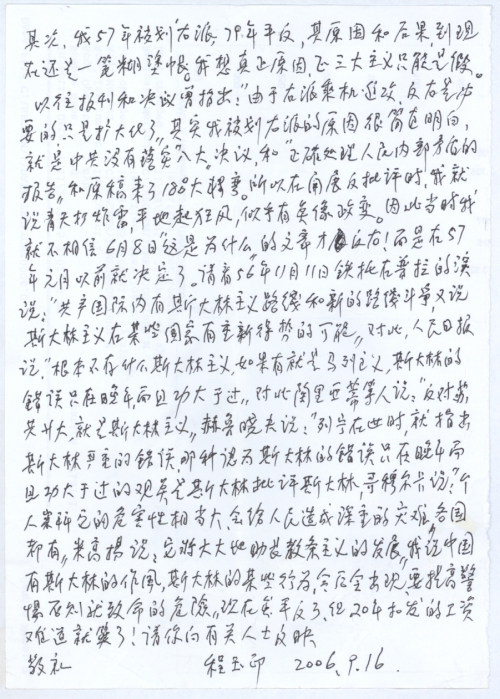 其次，我57年被划右派，79年平反，其原因和后果，到现
在还是一笔糊塗帐。我想真正原因，反三大主义只能是假。
以往报刊和决议曾指出："由于右派乘机进攻，反右是必
要的只是扩大化了"。其实我被划右派的原因很简单明白，
就是中共没有落实"八大"决议，和"正确处理人民内部矛盾的
报告"，和原稿来了180°大转变。所以在开展反批评时，我就
说青天打炸雷，平地起狂风，似乎有点像政变。因此当时我
就不相信6月8日"这是为什么"的文章才反右！而是在57
年元月以前就决定了。请看56年11月11日铁托在普拉的演
说："共产国际内有斯大林主义路线和新的路线斗争，又说
斯大林主义在某些国家有重新得势的可能"，对此，人民日报
说："根本不存什么斯大林主义，如果有就是马列主义，斯大林的
错误只在晚年，而且功大于过"，对此陶里亚蒂等人说："反对苏
共廿大，就是斯大林主义"，赫鲁晓夫说："列宁在世时，就指出
斯大林严重的错误，那种认为斯大林的错误只在晚年而
且功大于过的观点是斯大林批评斯大林，哥穆尔卡说："个
人崇拜它的危害性相当大，会给人民造成深重的灾难"，各国
都有"，米高扬说："它将大大地助长教条主义的发展"，我说中国
有斯大林的作风，斯大林的某些行为，今后会出现，要提高警
惕否则就致命的危险"，现在虽平反了，但20年扣发的工资
难道就算了！请你向有关人士反映。
敬礼 程玉印 2006.9.16.